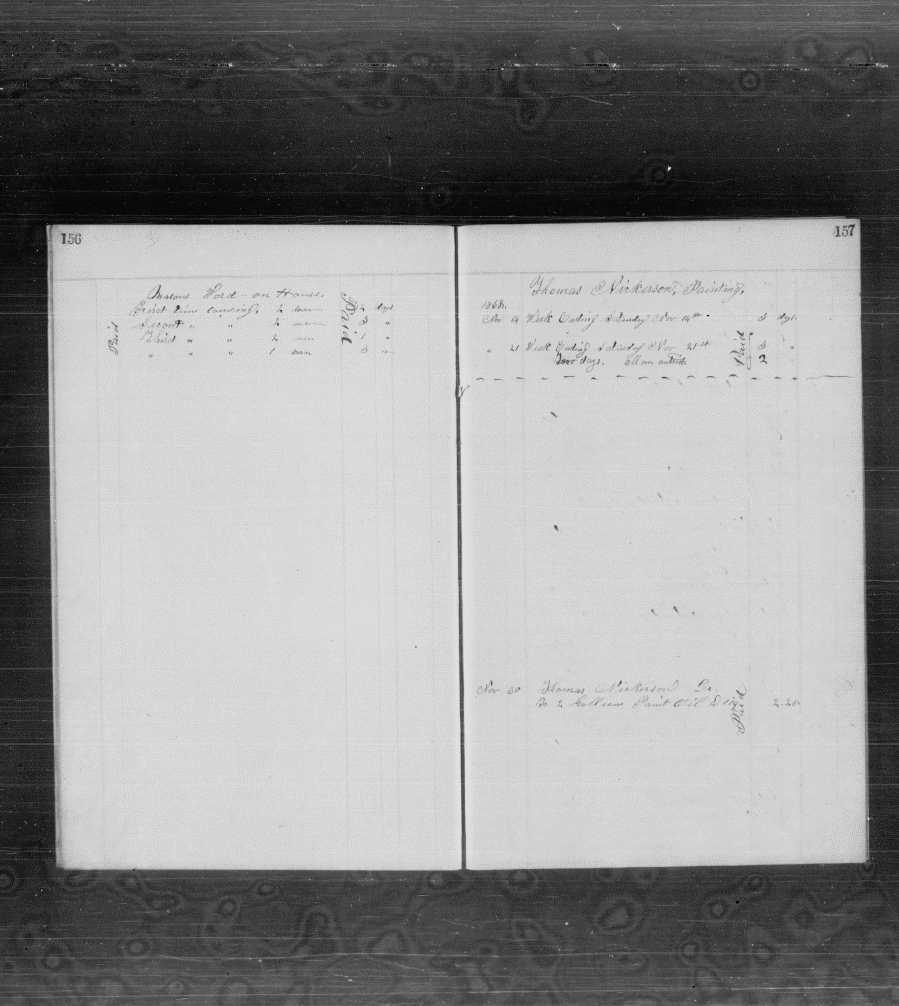 156
Masons Work on House.
First time lancing, 2 men 2 days
Second " " 2 men 3 "
Third " " 2 men 1 "
" " " 1 man 3 "
Paid
Paid
157
Thomas Nickerson, Painting,
1868.
Nov 14 Week Ending Saturday Nov. 14th 3 days.
" 21 Week Ending Saturday Nov 21st 3 "
days. all on outside 2
Paid
Nov 30 Thomas Nickerson Dr.
To 2 Gallons Paint Oil 2.25
Paid